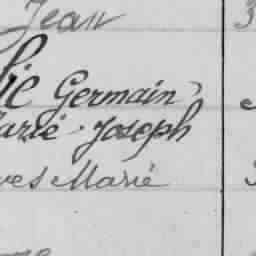 Jean
Germain
Marie Joseph
Yves Marie